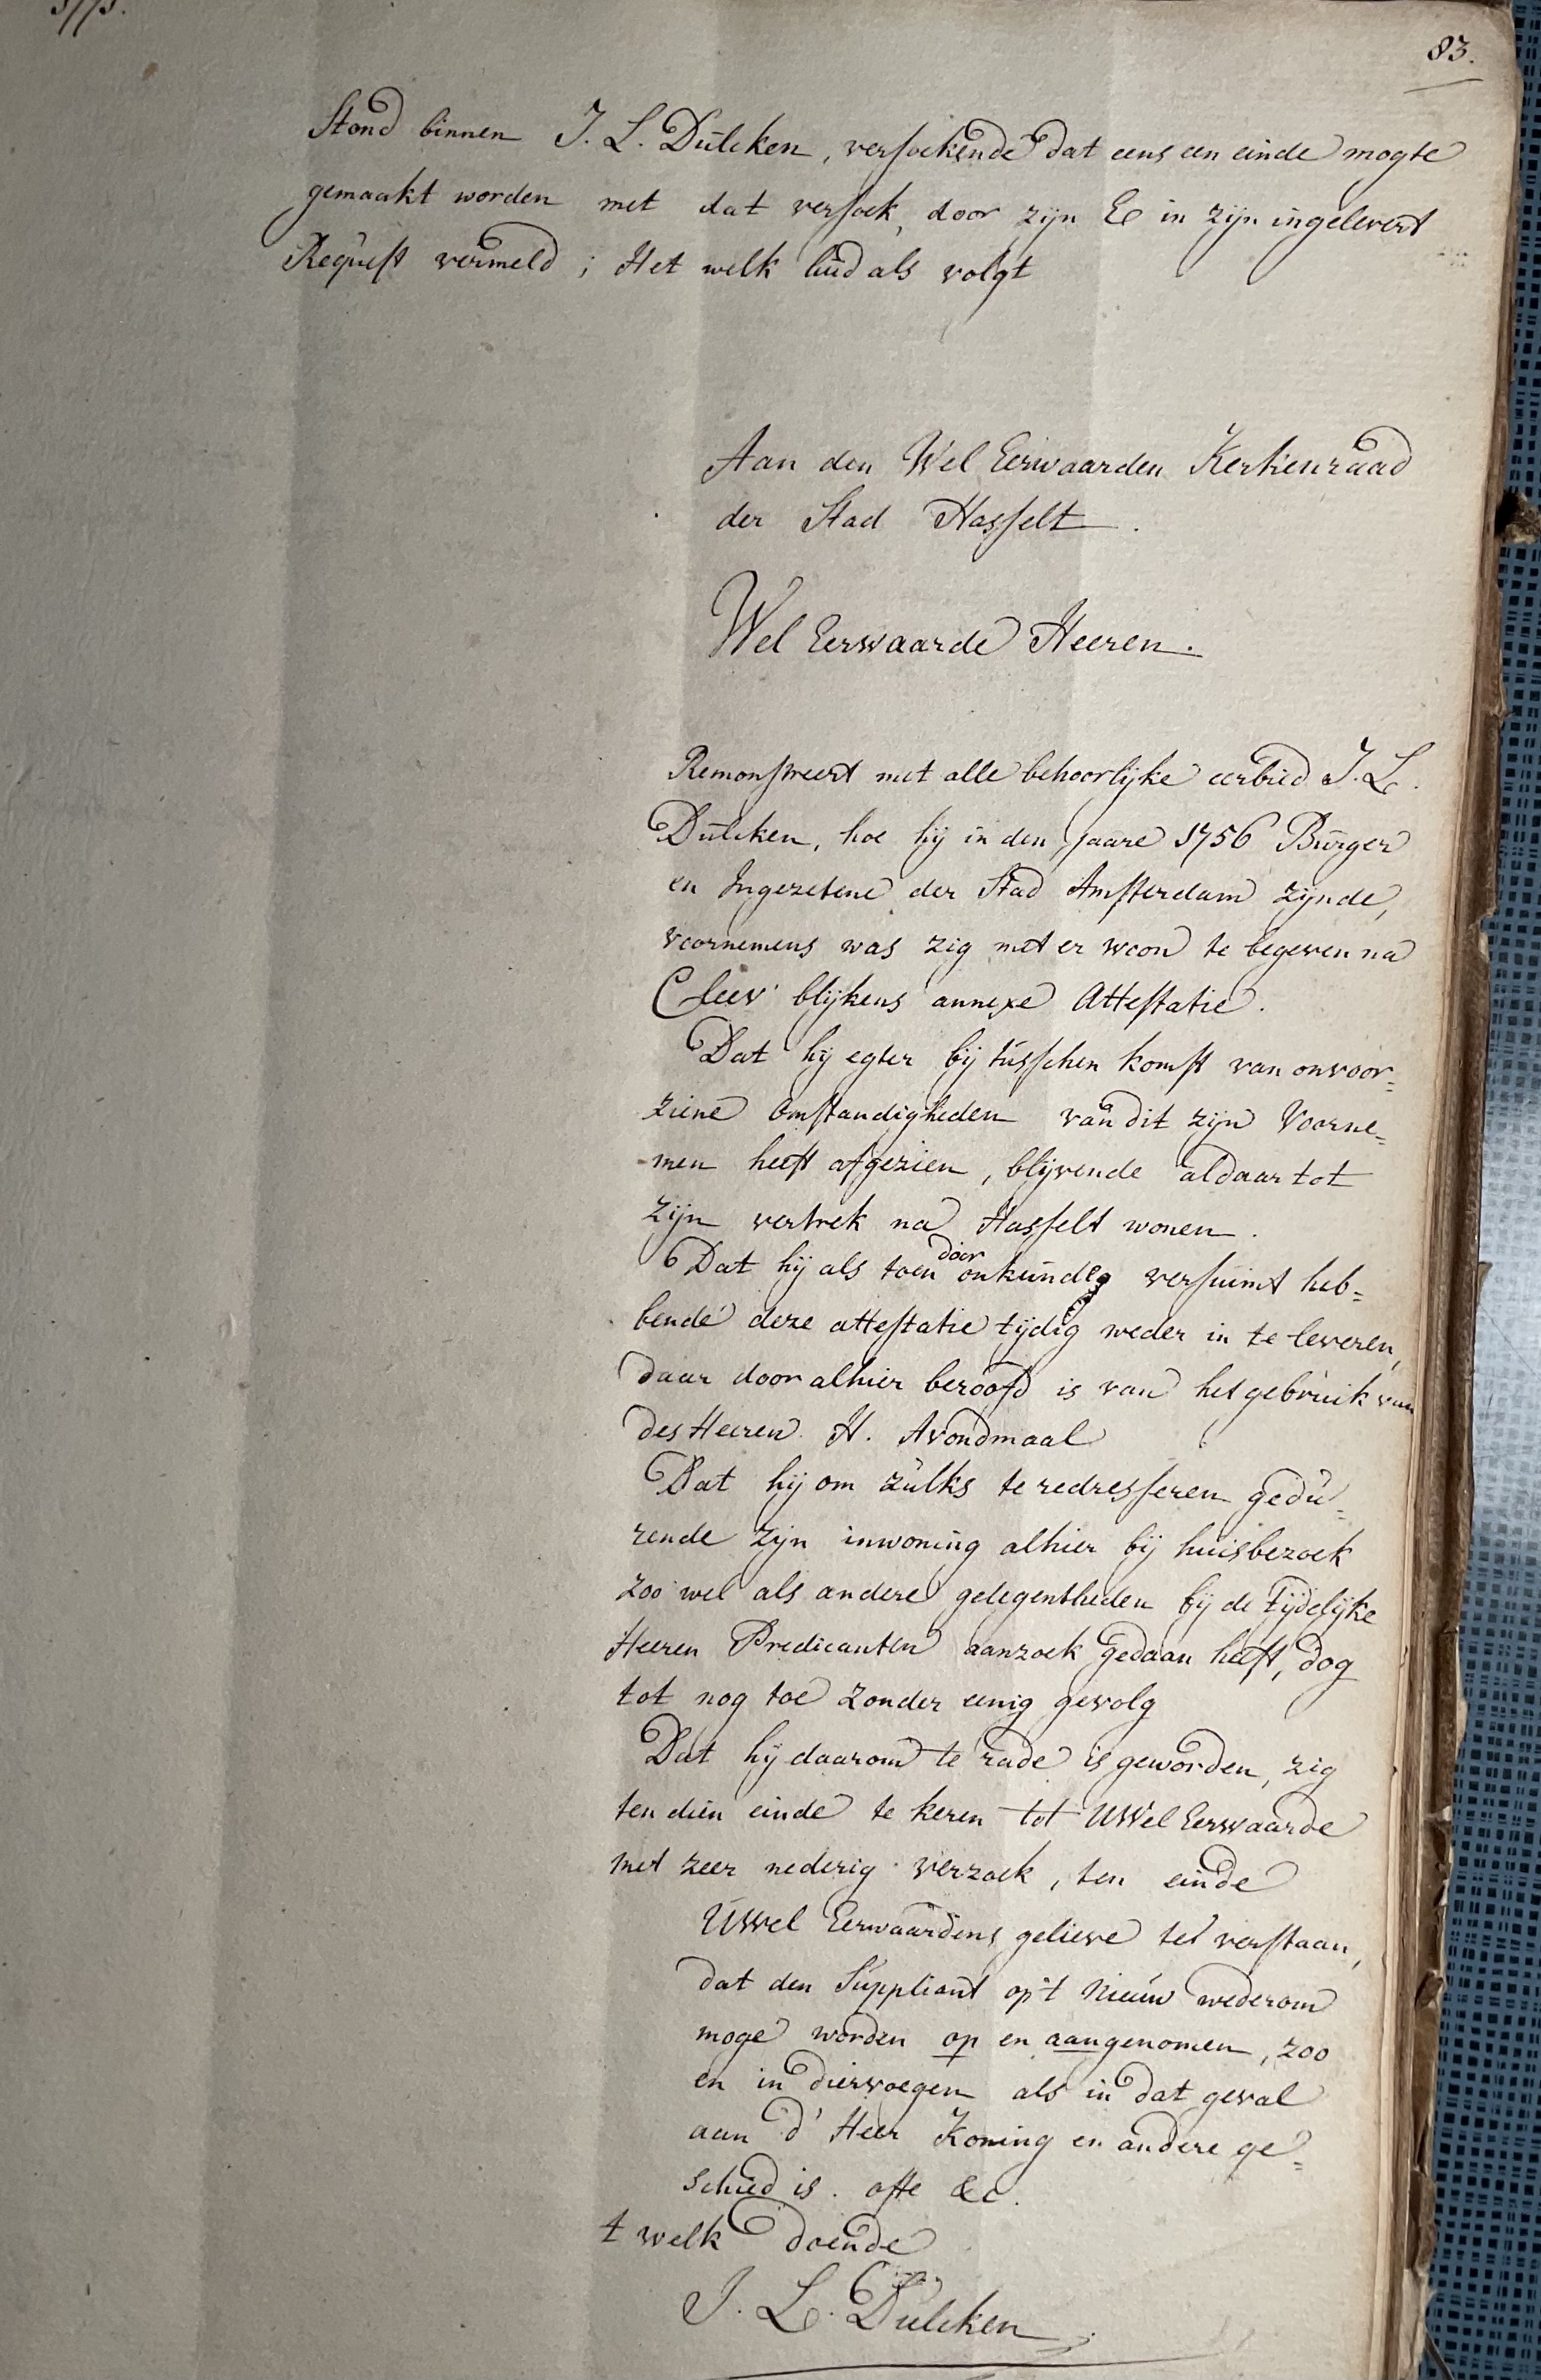 83.
Stond binnen J. L. Dulcken, versoekende dat eens een einde mogte
gemaakt worden met dat versoek, door zijn E in zijn ingelevert
Request vermeld; Het welk luid als volgt
Aan den Wel Eerwaarden Kerkenraad
der Stad Hasselt.
Wel Eerwaarde Heeren.
Remonstreert met alle behoorlijke eerbied J. L.
Dulcken, hoe hij in den jaare 1756 Burger
en Ingezetene der Stad Amsterdam zijnde,
voornemens was zig met er woon te begeven na
Cleev blijkens annexe Attestatie.
Dat hij egter bij tusschen komst van onvoor=
ziene omstandigheden van dit zijn Voorne=
men heeft afgezien, blijvende aldaar tot
zijn vertrek na Hasselt wonen.
Dat hij als toen door onkunde versuimt heb=
bende deze attestatie tijdig weder in te leveren,
daar door alhier beroofd is van het gebruik van
des Heeren H. Avondmaal
Dat hij om zulks te redresseren gedu=
rende zijn inwoning alhier bij huisbezoek
zoo wel als andere gelegentheden bij de tijdelijke
Heeren Predicanten aanzoek gedaan heeft, dog
tot nog toe zonder eenig gevolg
Dat hij daarom te rade is geworden, zig
ten dien einde te keren tot UWel Eerwaarde
met zeer nederig verzoek, ten einde
UWel Eerwaardens gelieve te verstaan,
dat den Suppliant op't nieuw wederom
moge worden op en aangenomen, zoo
en in diervoegen als in dat geval
aan d' Heer Koning en andere ge=
schied is. ofte &c.
t welk doende
J. L. Dulcken